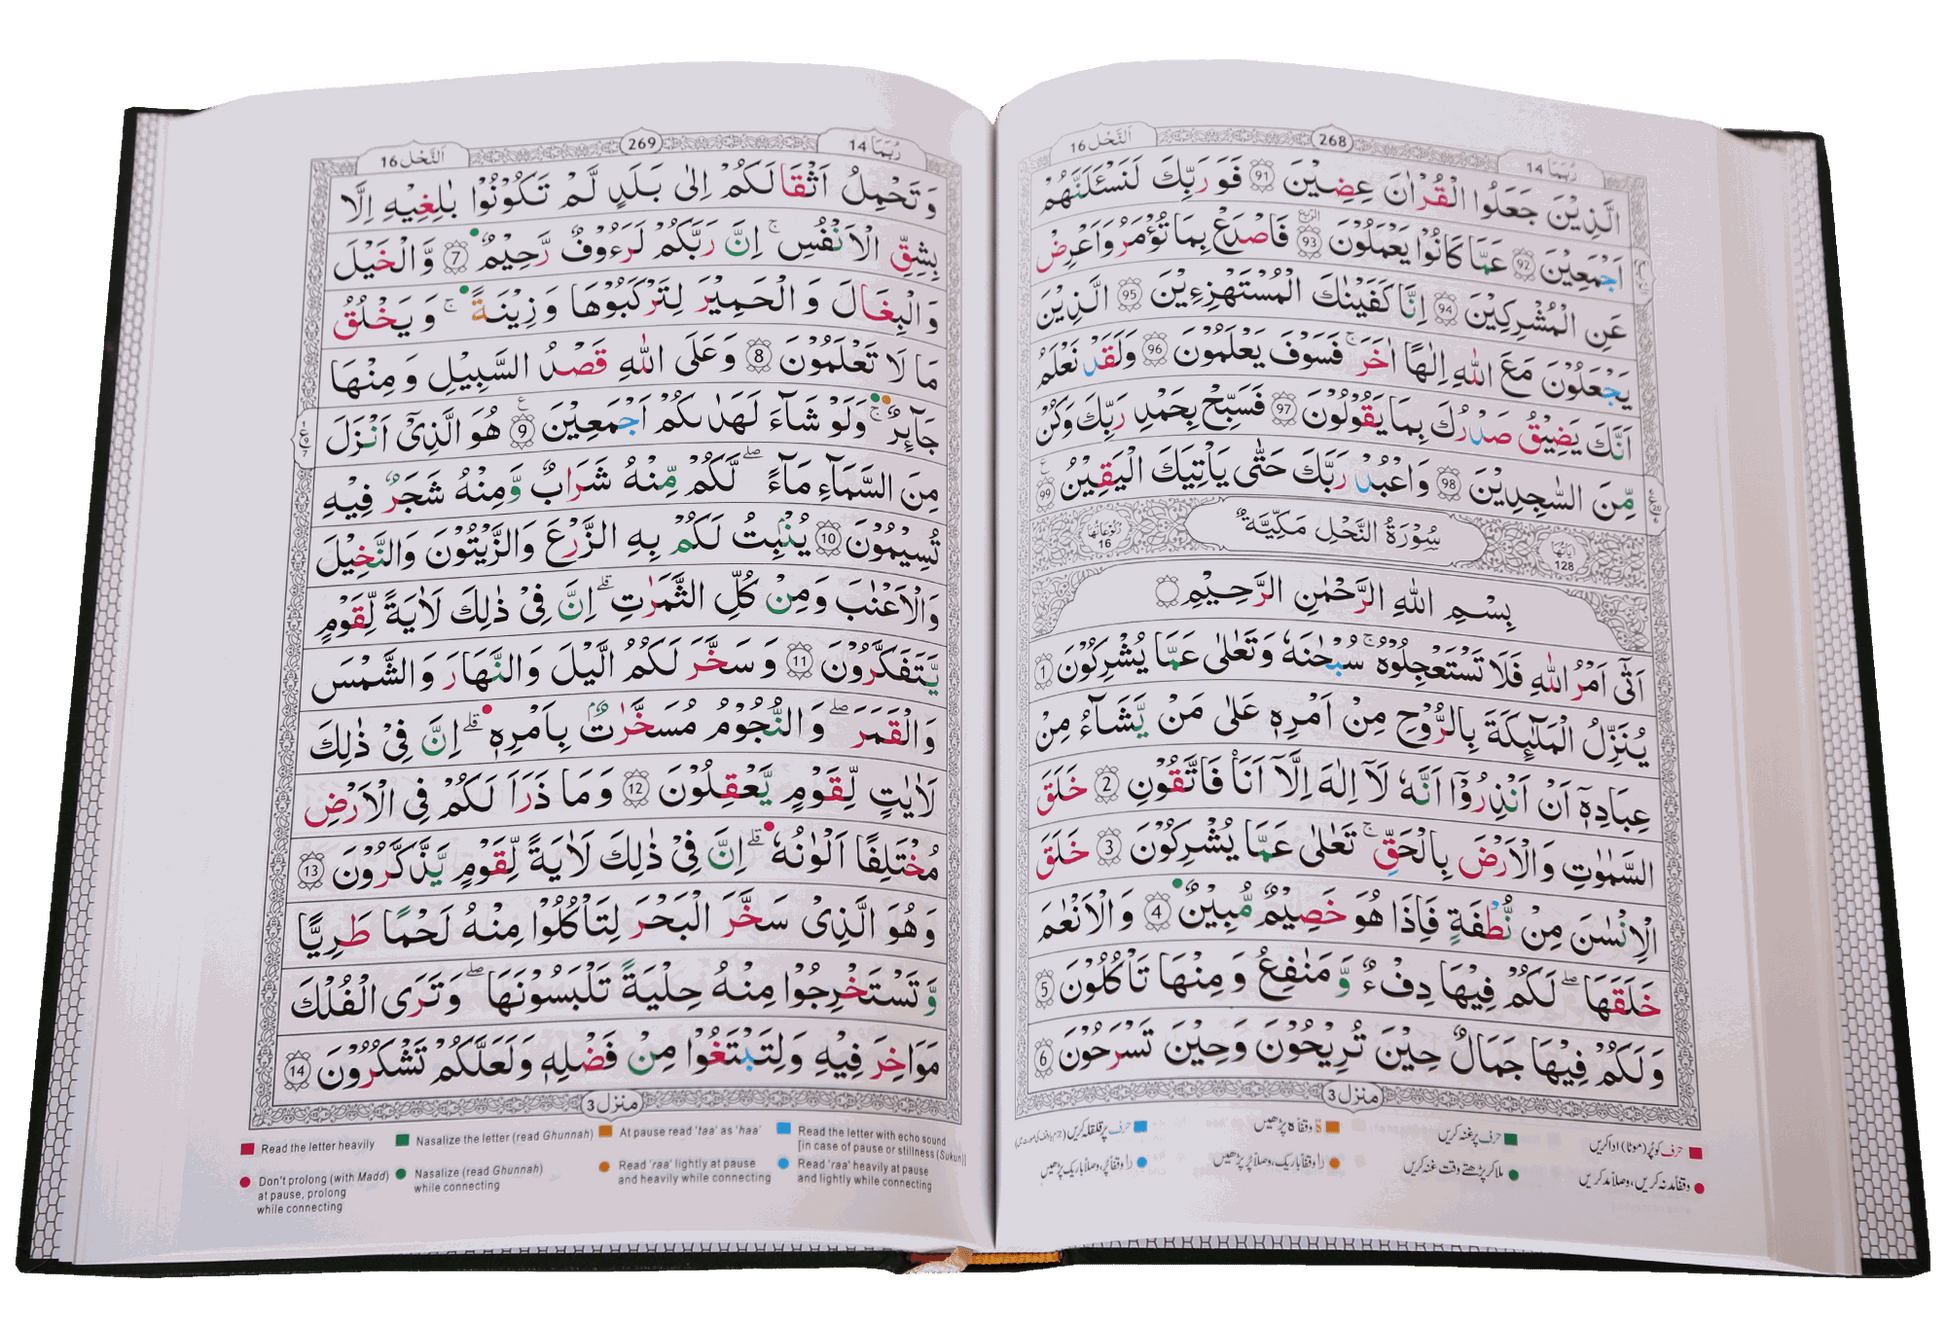 رُبَمَا 14
268
اَلنَّحْل 16
الَّذِيْنَ جَعَلُوا الْقُرْاٰنَ عِضِيْنَ 91 فَوَرَبِّكَ لَنَسْـَٔلَنَّهُمْ
اَجْمَعِيْنَ 92 عَمَّا كَانُوْا يَعْمَلُوْنَ 93 فَاصْدَعْ بِمَا تُؤْمَرُ وَاَعْرِضْ
عَنِ الْمُشْرِكِيْنَ 94 اِنَّا كَفَيْنٰكَ الْمُسْتَهْزِءِيْنَ 95 الَّذِيْنَ
يَجْعَلُوْنَ مَعَ اللّٰهِ اِلٰهًا اٰخَرَ ۚ فَسَوْفَ يَعْلَمُوْنَ 96 وَلَقَدْ نَعْلَمُ
اَنَّكَ يَضِيْقُ صَدْرُكَ بِمَا يَقُوْلُوْنَ 97 فَسَبِّحْ بِحَمْدِ رَبِّكَ وَكُنْ
مِّنَ السّٰجِدِيْنَ 98 وَاعْبُدْ رَبَّكَ حَتّٰى يَاْتِيَكَ الْيَقِيْنُ 99
اٰيَاتُهَا 128
سُوْرَةُ النَّحْلِ مَكِّيَّةٌ
رُكُوْعَاتُهَا 16
بِسْمِ اللّٰهِ الرَّحْمٰنِ الرَّحِيْمِ
اَتٰٓى اَمْرُ اللّٰهِ فَلَا تَسْتَعْجِلُوْهُ ۚ سُبْحٰنَهٗ وَتَعٰلٰى عَمَّا يُشْرِكُوْنَ 1
يُنَزِّلُ الْمَلٰٓئِكَةَ بِالرُّوْحِ مِنْ اَمْرِهٖ عَلٰى مَنْ يَّشَآءُ مِنْ
عِبَادِهٖٓ اَنْ اَنْذِرُوْٓا اَنَّهٗ لَآ اِلٰهَ اِلَّآ اَنَا فَاتَّقُوْنِ 2 خَلَقَ
السَّمٰوٰتِ وَالْاَرْضَ بِالْحَقِّ ۚ تَعٰلٰى عَمَّا يُشْرِكُوْنَ 3 خَلَقَ
الْاِنْسٰنَ مِنْ نُّطْفَةٍ فَاِذَا هُوَ خَصِيْمٌ مُّبِيْنٌ 4 وَالْاَنْعٰمَ
خَلَقَهَا ۖ لَكُمْ فِيْهَا دِفْءٌ وَّمَنٰفِعُ وَمِنْهَا تَاْكُلُوْنَ 5
وَلَكُمْ فِيْهَا جَمَالٌ حِيْنَ تُرِيْحُوْنَ وَحِيْنَ تَسْرَحُوْنَ 6
منزل 3
حرف کو پُر (موٹا) ادا کریں
حرف پر غنہ کریں
ة وقفاً ہ پڑھیں
حرف پر قلقلہ کریں
وقفاً مد نہ کریں، وصلاً مد کریں
ملا کر پڑھتے وقت غنہ کریں
را وقفاً باریک، وصلاً پُر پڑھیں
را وقفاً پُر، وصلاً باریک پڑھیں
رُبَمَا 14
269
اَلنَّحْل 16
وَتَحْمِلُ اَثْقَالَكُمْ اِلٰى بَلَدٍ لَّمْ تَكُوْنُوْا بٰلِغِيْهِ اِلَّا
بِشِقِّ الْاَنْفُسِ ۚ اِنَّ رَبَّكُمْ لَرَءُوْفٌ رَّحِيْمٌ 7 وَّالْخَيْلَ
وَالْبِغَالَ وَالْحَمِيْرَ لِتَرْكَبُوْهَا وَزِيْنَةً ۚ وَيَخْلُقُ
مَا لَا تَعْلَمُوْنَ 8 وَعَلَى اللّٰهِ قَصْدُ السَّبِيْلِ وَمِنْهَا
جَآئِرٌ ۚ وَلَوْ شَآءَ لَهَدٰىكُمْ اَجْمَعِيْنَ 9 هُوَ الَّذِيْٓ اَنْزَلَ
مِنَ السَّمَآءِ مَآءً ۖ لَّكُمْ مِّنْهُ شَرَابٌ وَّمِنْهُ شَجَرٌ فِيْهِ
تُسِيْمُوْنَ 10 يُنْۢبِتُ لَكُمْ بِهِ الزَّرْعَ وَالزَّيْتُوْنَ وَالنَّخِيْلَ
وَالْاَعْنٰبَ وَمِنْ كُلِّ الثَّمَرٰتِ ۗ اِنَّ فِيْ ذٰلِكَ لَاٰيَةً لِّقَوْمٍ
يَّتَفَكَّرُوْنَ 11 وَسَخَّرَ لَكُمُ الَّيْلَ وَالنَّهَارَ وَالشَّمْسَ
وَالْقَمَرَ ۖ وَالنُّجُوْمُ مُسَخَّرٰتٌۢ بِاَمْرِهٖ ۗ اِنَّ فِيْ ذٰلِكَ
لَاٰيٰتٍ لِّقَوْمٍ يَّعْقِلُوْنَ 12 وَمَا ذَرَاَ لَكُمْ فِي الْاَرْضِ
مُخْتَلِفًا اَلْوٰنُهٗ ۗ اِنَّ فِيْ ذٰلِكَ لَاٰيَةً لِّقَوْمٍ يَّذَّكَّرُوْنَ 13
وَهُوَ الَّذِيْ سَخَّرَ الْبَحْرَ لِتَاْكُلُوْا مِنْهُ لَحْمًا طَرِيًّا
وَّتَسْتَخْرِجُوْا مِنْهُ حِلْيَةً تَلْبَسُوْنَهَا ۖ وَتَرَى الْفُلْكَ
مَوَاخِرَ فِيْهِ وَلِتَبْتَغُوْا مِنْ فَضْلِهٖ وَلَعَلَّكُمْ تَشْكُرُوْنَ 14
منزل 3
Read the letter heavily
Nasalize the letter (read Ghunnah)
At pause read 'taa' as 'haa'
Read the letter with echo sound
[in case of pause or stillness (Sukun)]
Don't prolong (with Madd)
at pause, prolong
while connecting
Nasalize (read Ghunnah)
while connecting
Read 'raa' lightly at pause
and heavily while connecting
Read 'raa' heavily at pause
and lightly while connecting